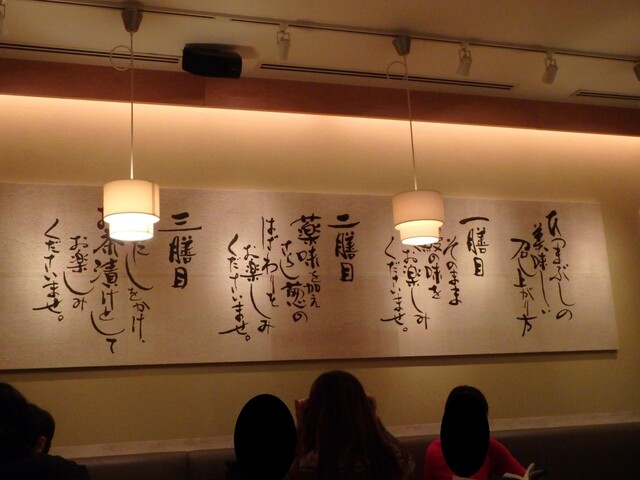 ひつまぶしの
美味しい
召し上がり方
一膳目
そのまま
の味を
お楽しみ
くださいませ。
二膳目
薬味を加え
さらし葱の
はざわりを
お楽しみ
くださいませ。
三膳目
だしをかけ、
お茶漬けとして
お楽しみ
くださいませ。